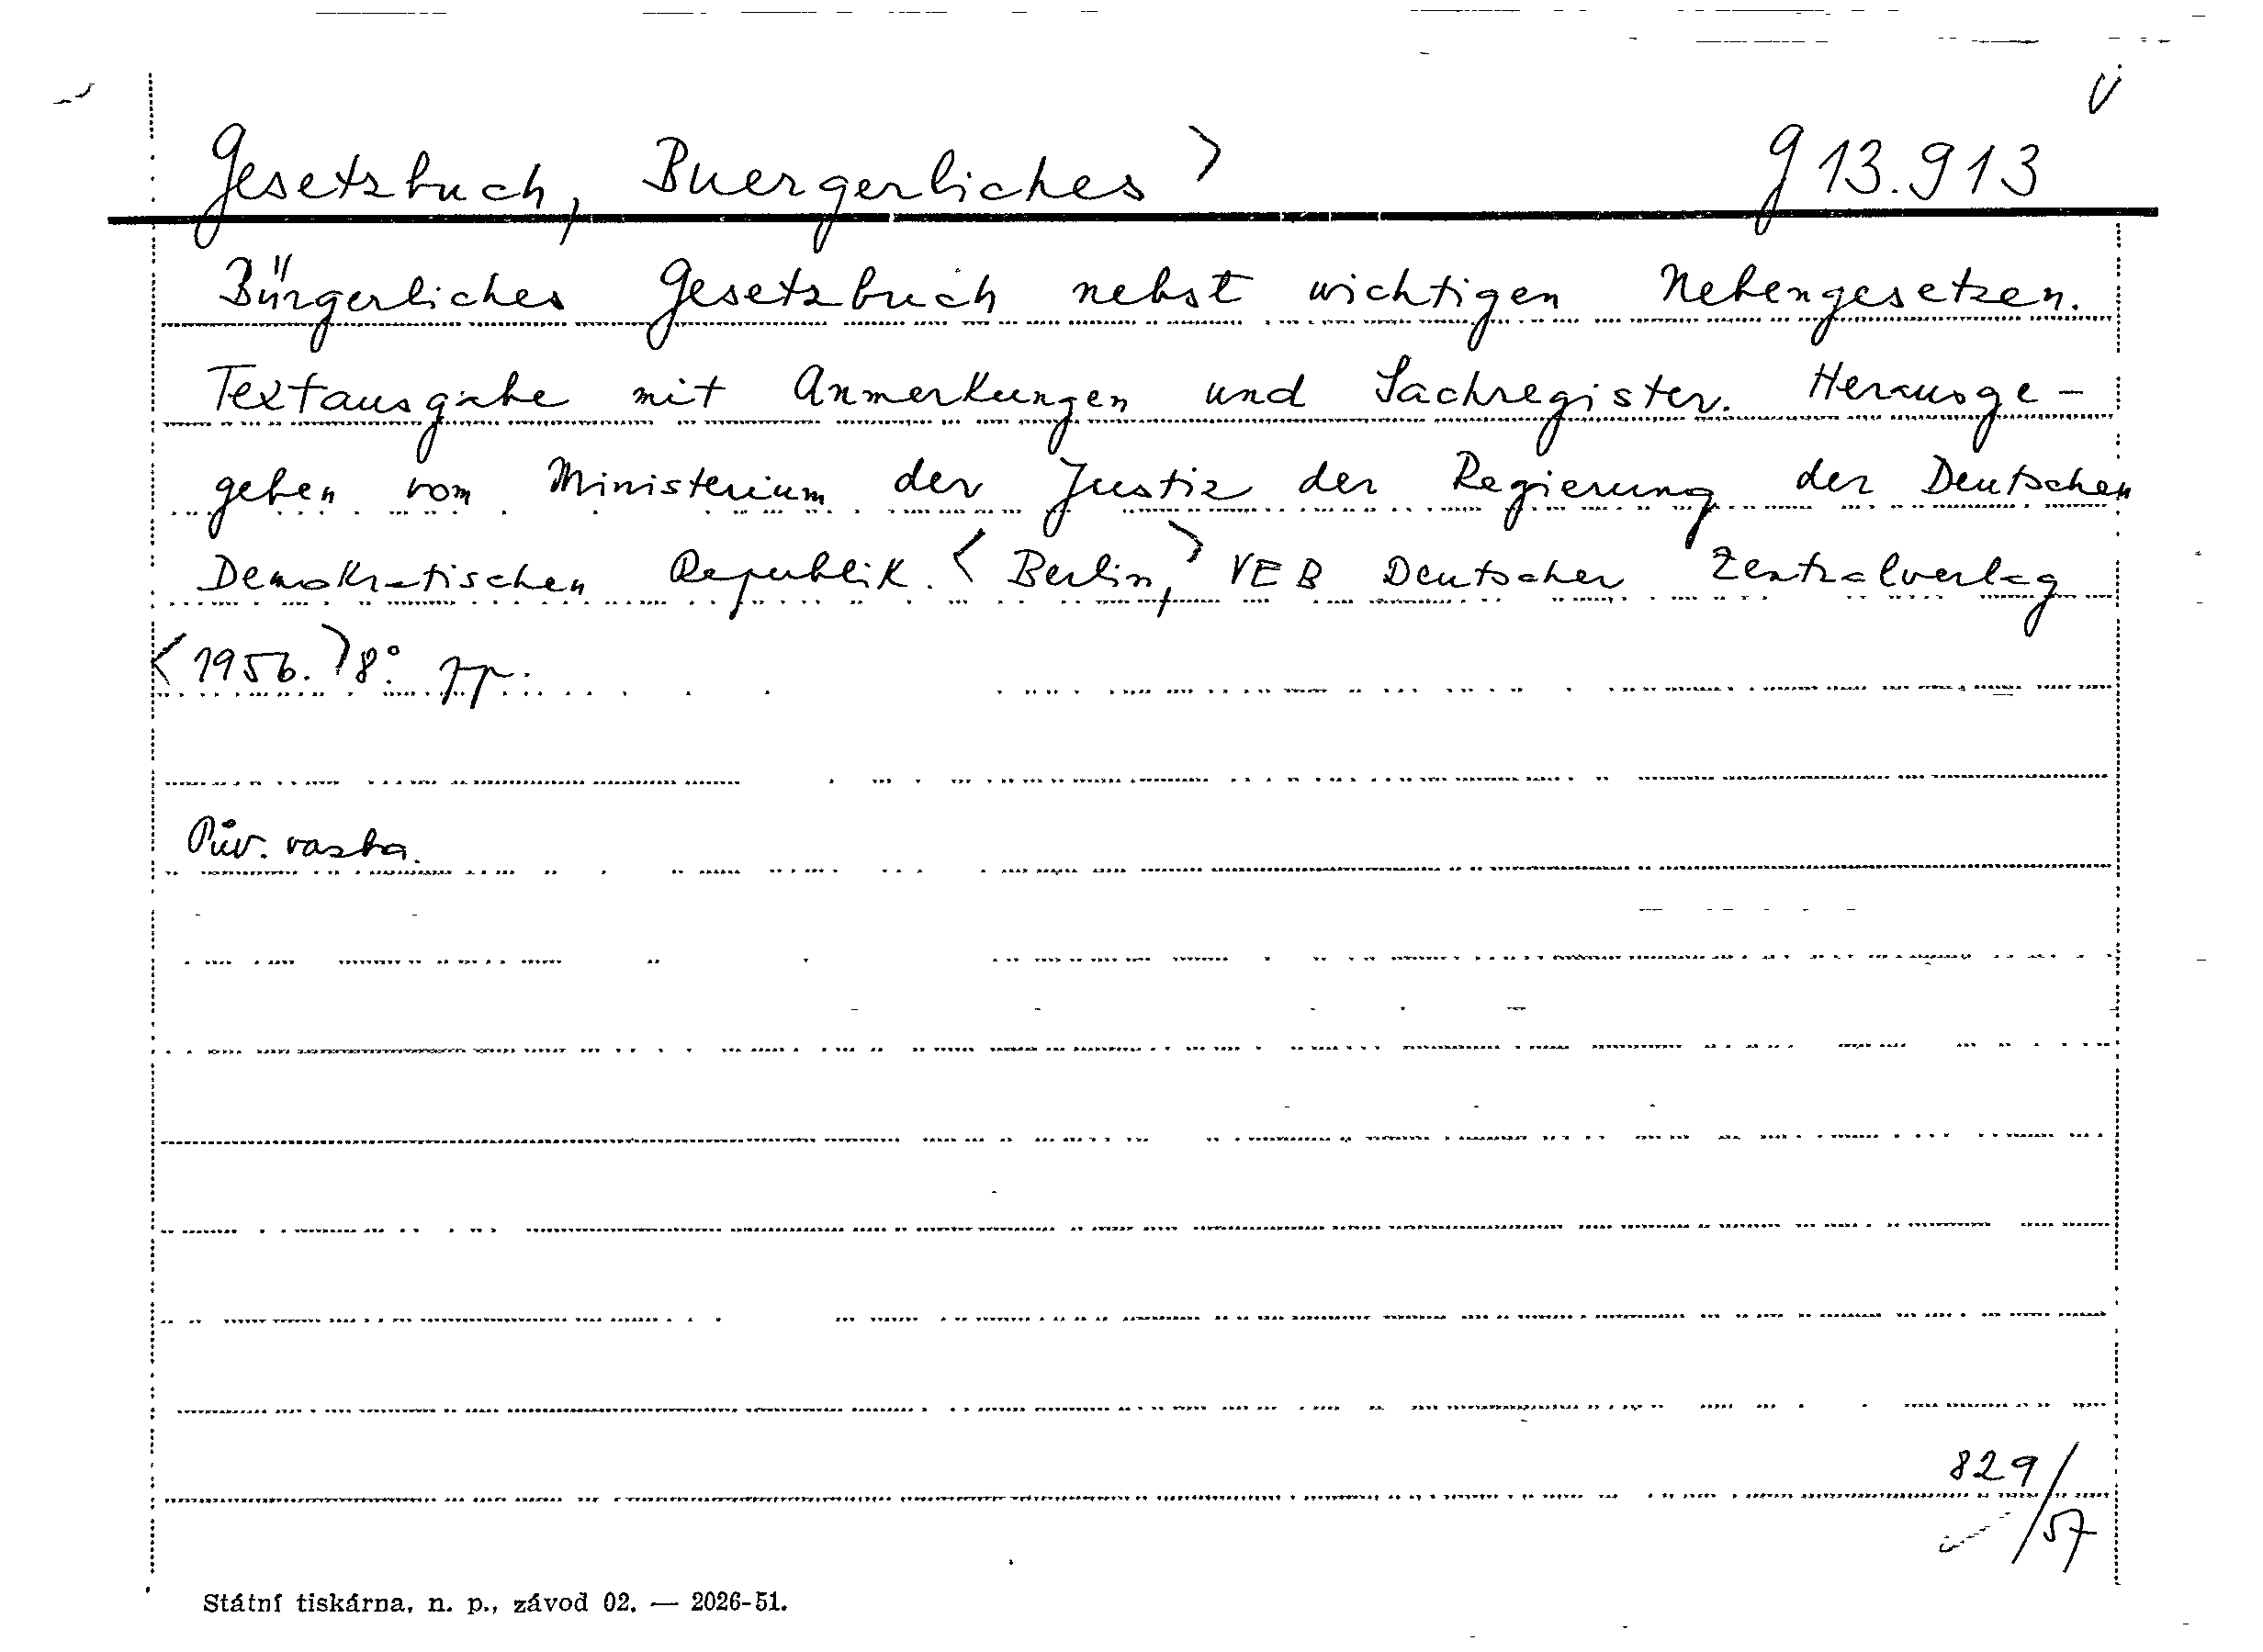 Gesetzbuch, Buergerliches > g 13.913
Bürgerliches Gesetzbuch nebst wichtigen Nebengesetzen.
Textausgabe mit Anmerkungen und Sachregister. Herausge-
geben vom Ministerium der Justiz der Regierung der Deutschen
Demokratischen Republik. < Berlin, > VEB Deutscher Zentralverlag
< 1956. > 8°.
Pův. vazba.
829/57
Státní tiskárna, n. p., závod 02. — 2026-51.